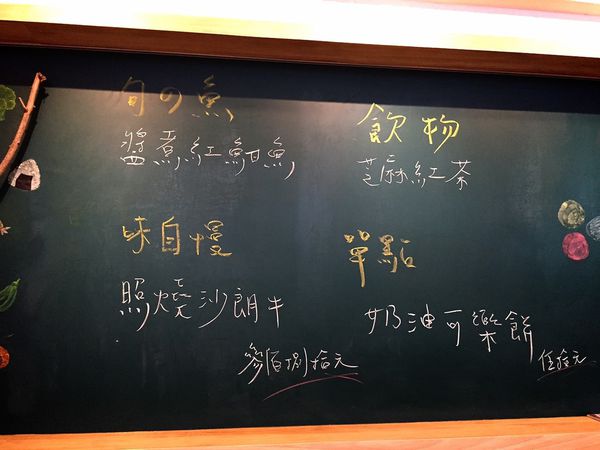 旬の魚
鹽煮紅魽魚
味自慢
照燒沙朗牛
參佰捌拾元
飲物
芝麻紅茶
單點
奶油可樂餅
伍拾元